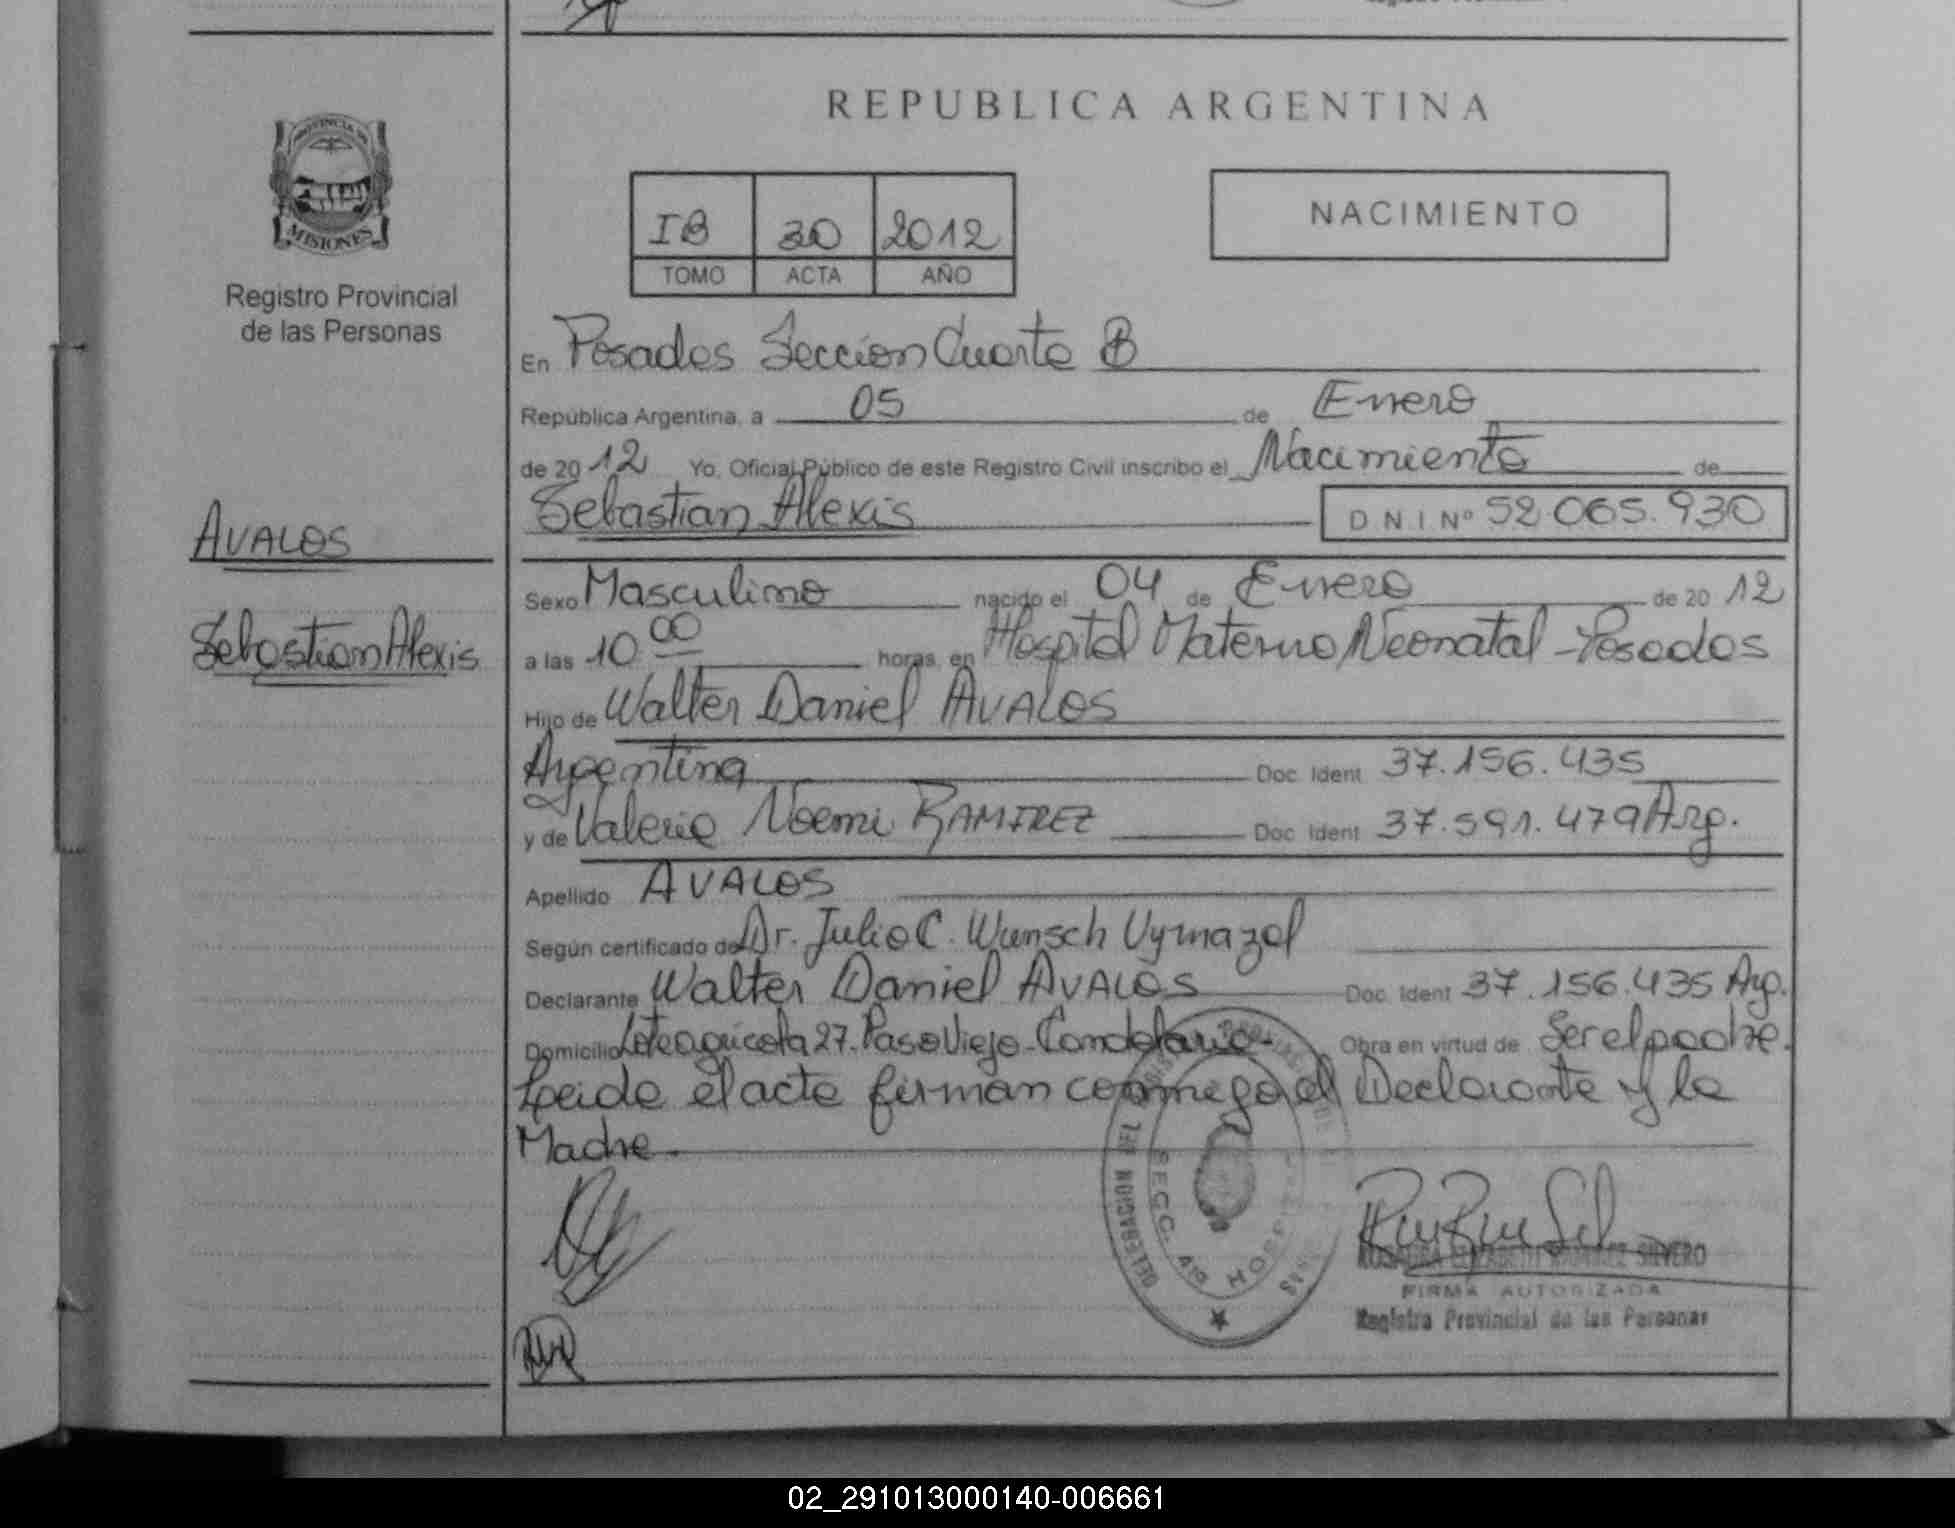 REPUBLICA ARGENTINA
PROVINCIA DE
MISIONES
Registro Provincial
de las Personas
IB 30 2012
TOMO ACTA AÑO
NACIMIENTO
En Posadas Seccion Cuarta B
República Argentina, a 05 de Enero
de 2012 Yo, Oficial Público de este Registro Civil inscribo el Nacimiento de
Sebastian Alexis D N I Nº 52.065.930
AVALOS
Sebastian Alexis
Sexo Masculino nacido el 04 de Enero de 2012
a las 10 00 horas, en Hospital Materno Neonatal - Posadas
Hijo de Walter Daniel AVALOS
Argentina Doc. Ident. 37.156.435
y de Valeria Noemi RAMIREZ Doc. Ident. 37.591.479 Arg.
Apellido AVALOS
Según certificado de Dr. Julio C. Wunsch Vymazal
Declarante Walter Daniel AVALOS Doc. Ident. 37.156.435 Arg.
Domicilio Lote agricola 27. Paso Viejo - Candelaria - Obra en virtud de Ser el padre.
Leida el acta firman conmigo el Declarante y la
Madre.-
DELEGACION DEL
SECC. 4ta HOSPITAL
SILVERO
FIRMA AUTORIZADA
Registro Provincial de las Personas
02_291013000140-006661